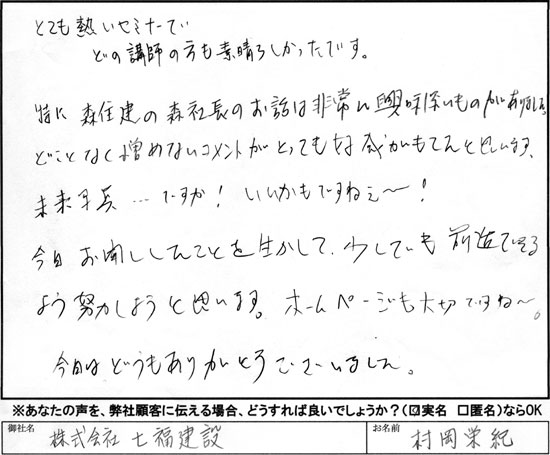 とても熱いセミナーで
どの講師の方も素晴らしかったです。
特に森住建の森社長のお話は非常に興味深いものがありました。
どことなく憎めないコメントがとっても好感がもてたと思います。
未来年表…ですか！いいかもですねぇ〜！
今日お聞きしたことを生かして、少しでも前進できる
よう努力しようと思います。ホームページも大切ですね〜。
今日はどうもありがとうございました。
※あなたの声を、弊社顧客に伝える場合、どうすれば良いでしょうか？(☑実名 □匿名)ならOK
御社名 株式会社 七福建設 お名前 村岡栄紀